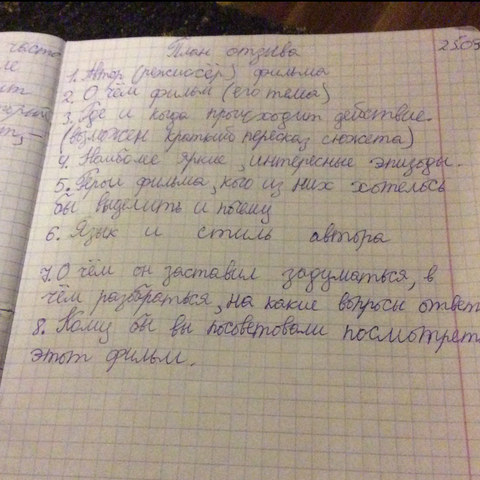 План отзыва
2509
1. Автор (режиссёр) фильма
2. О чём фильм (его тема)
3. Где и когда происходит действие.
(возможен краткий пересказ сюжета)
4. Наиболее яркие, интересные эпизоды.
5. Герои фильма, кого из них хотелось
бы выделить и почему
6. Язык и стиль автора
7. О чём он заставил задуматься, в
чём разобраться, на какие вопросы ответ
8. Кому бы вы посоветовали посмотреть
этот фильм.